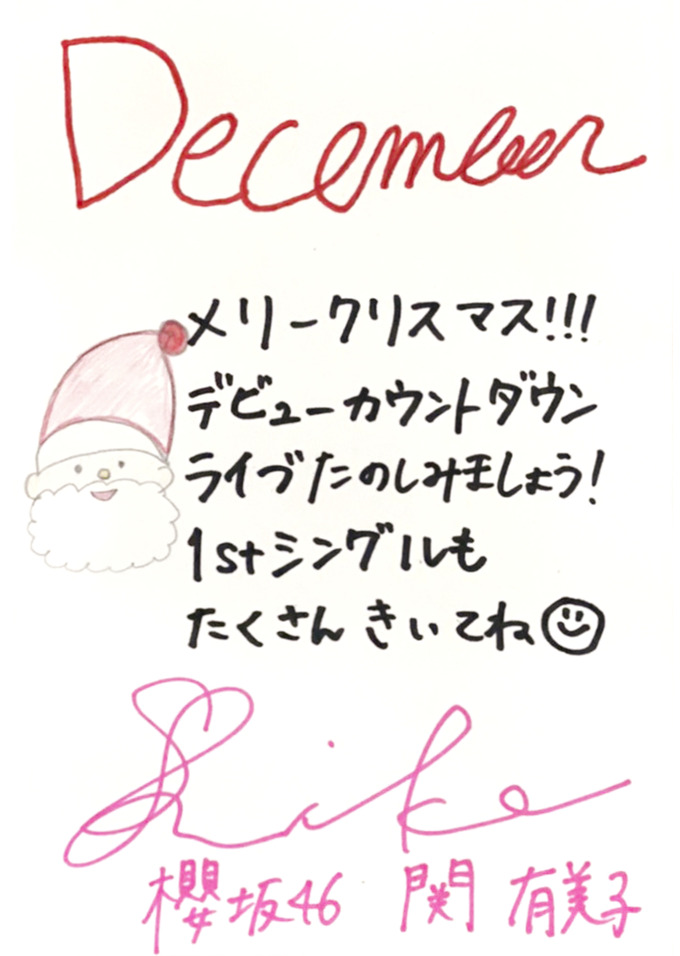 December
メリークリスマス!!!
デビューカウントダウン
ライブたのしみましょう!
1stシングルも
たくさんきいてね
櫻坂46 関 有美子